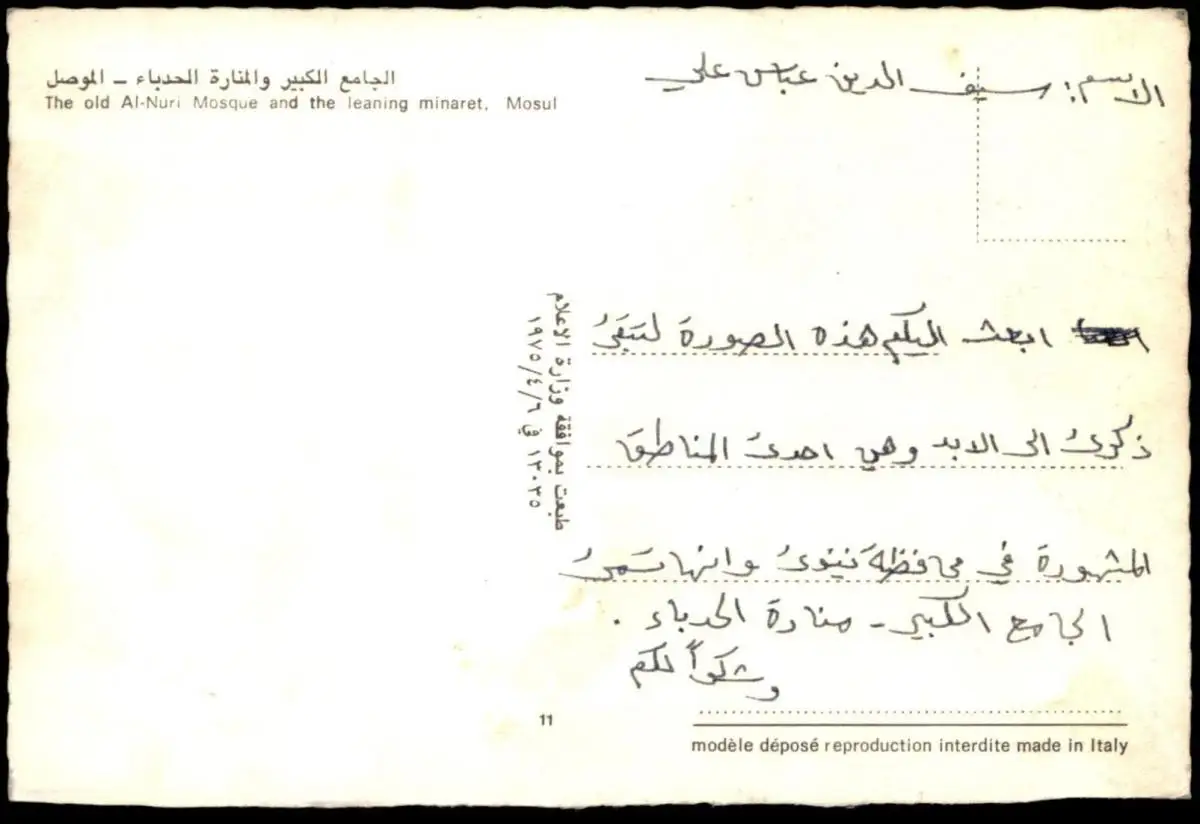 الجامع الكبير والمنارة الحدباء – الموصل
The old Al-Nuri Mosque and the leaning minaret, Mosul
الاسم: سيف الدين عباس علي
ابعث اليكم هذه الصورة لتبقىُ
ذكرىُ الى الابد وهي احدىُ المناطق
المشهورة في محافظة نينوىُ وانها تسمىُ
الجامع الكبير - منارة الحدباء .
وشكراً لكم
طبعت بموافقة وزارة الإعلام
١٣٠٣٥ في ١٩٧٥/٤/٦
11
modèle déposé reproduction interdite made in Italy